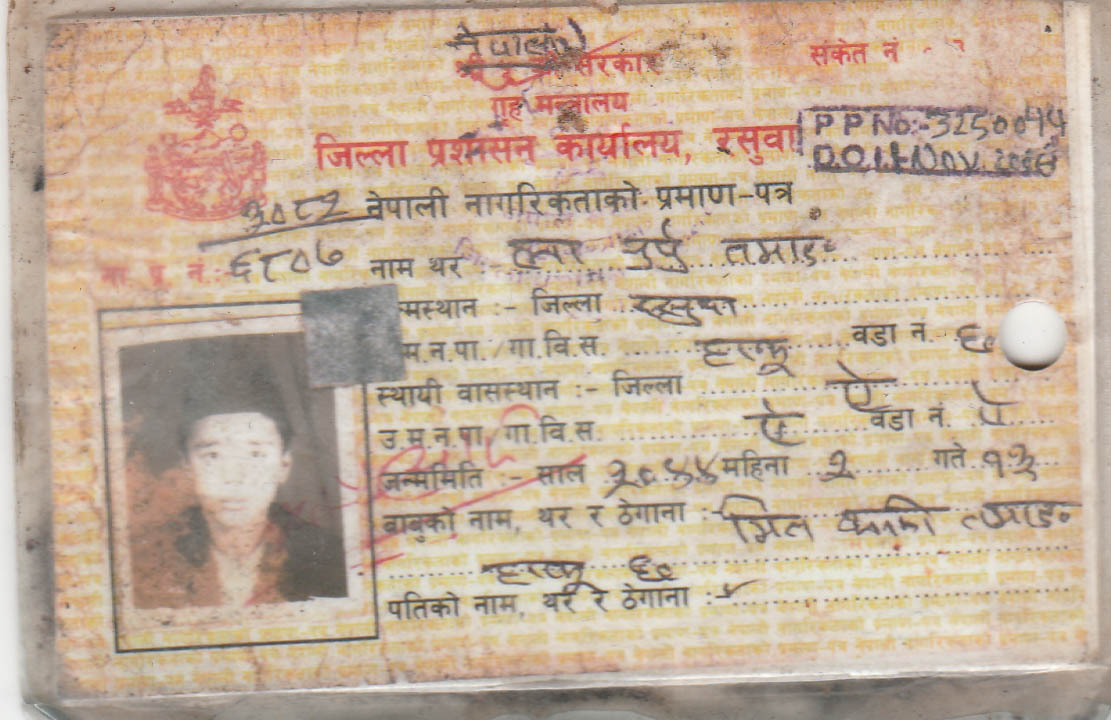 नेपाल
सरकार
संकेत नं
गृह मन्त्रालय
जिल्ला प्रशासन कार्यालय, रसुवा
P P No:- 3250044
D.O.I
नेपाली नागरिकताको प्रमाण-पत्र
ना. प्र. नं. ६८०७
नाम थर : तमाङ
मस्थान :- जिल्ला रसुवा
म.न.पा. गा.वि.स. हाकू वडा नं.
स्थायी वासस्थान :- जिल्ला ऐ
उ.म.न.पा. गा.वि.स. ऐ वडा नं. ऐ
जन्ममिति :- साल २०४४ महिना २ गते १३
बाबुको नाम, थर र ठेगाना :- तमाङ
हाकू
पतिको नाम, थर र ठेगाना :-